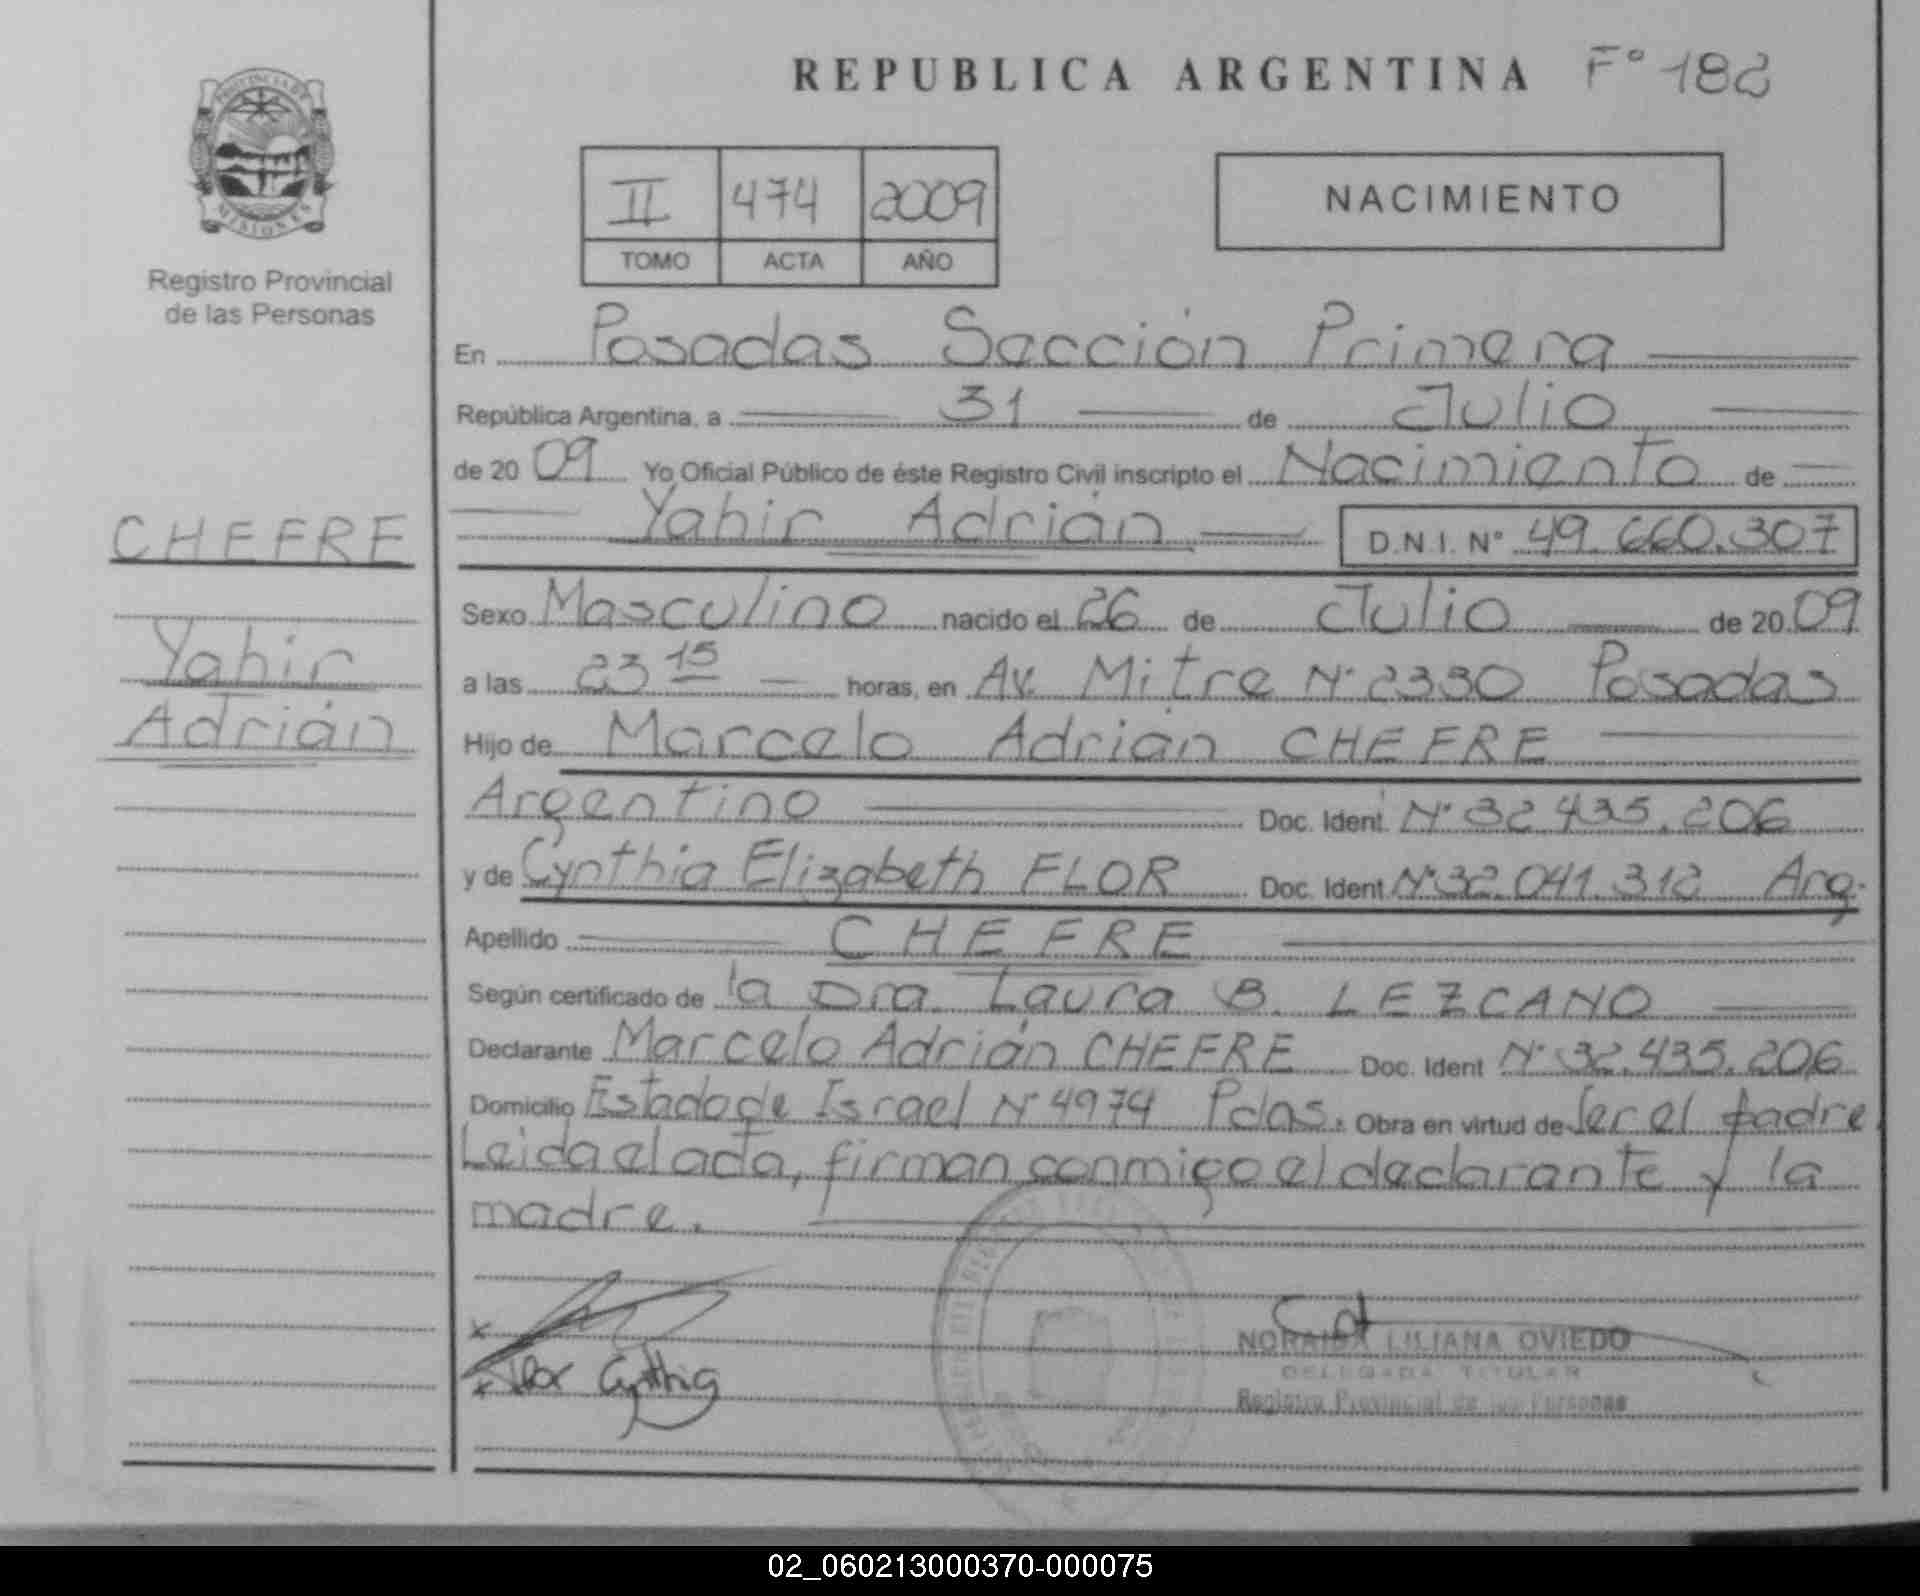 REPUBLICA ARGENTINA Fº 182
PROVINCIA DE
MISIONES
Registro Provincial
de las Personas
II 474 2009
TOMO ACTA AÑO
NACIMIENTO
En Posadas Sección Primera
República Argentina, a 31 de Julio
de 20 09 Yo Oficial Público de éste Registro Civil inscripto el Nacimiento de
Yahir Adrián D.N.I. Nº 49.660.307
CHEFRE
Yahir
Adrián
Sexo Masculino nacido el 26 de Julio de 20 09
a las 23 15 horas, en Av. Mitre Nº 2330 Posadas
Hijo de Marcelo Adrián CHEFRE
Argentino Doc. Ident. Nº 32.435.206
y de Cynthia Elizabeth FLOR Doc. Ident. Nº 32.041.312 Arg.
Apellido CHEFRE
Según certificado de la Dra. Laura B. LEZCANO
Declarante Marcelo Adrián CHEFRE Doc. Ident Nº 32.435.206
Domicilio Estado de Israel Nº 4974 Pdas. Obra en virtud de Ser el padre
Leida el acta, firman conmigo el declarante y la
madre.
x
x Flor Cynthia
NORAIDA LILIANA OVIEDO
DELEGADA TITULAR
Registro Provincial de las Personas
02_060213000370-000075